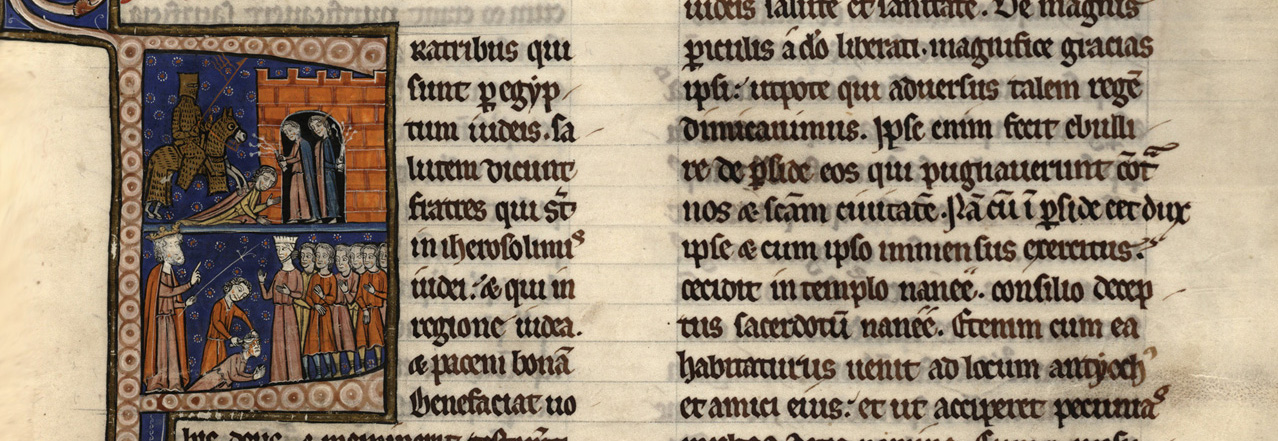 ratribus qui
sunt ꝑ egyp
tum iudeis. sa
lutem dicunt
fratres qui st̄
in iherosolimis
iudei: ⁊ qui in
regione iudea.
⁊ pacem bonā
Benefaciat uo
iudeis salute et sanitate. De magnis
ꝑiculis a dō liberati. magnifice gracias
ipsi: utpote qui aduersus talem regē
dimicauimus. Ipse enim fecit ebulli
re de ꝑside eos qui pugnauerunt cōt
nos ⁊ scām ciuitatē. Nā cū ī ꝑside eēt dux
ipse ⁊ cum ipso immensus exercitus:
cecidit in templo naneē. consilio decep
tus sacerdotū naneē. Etenim cum ea
habitaturus uenit ad locum antyoch᾽
et amici eius: et ut acciperet pecunias